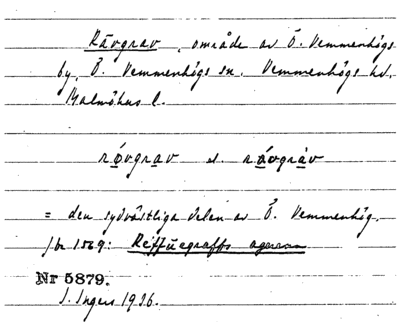 Rävgrav, område av Ö. Vemmenhögs
by, Ö. Vemmenhögs sn. Vemmenhögs hd.
Malmöhus l.
rǫvgrav el. rävgràv
= den sydvästliga delen av Ö. Vemmenhög.
Jbr 1569: Reffuegraffs ageren
Nr 5879.
I. Ingers 1936.